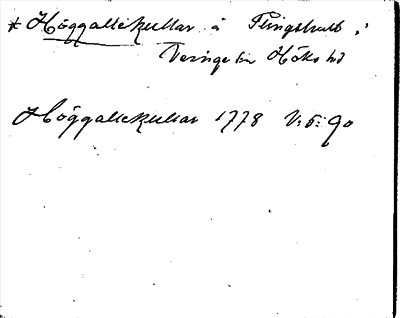 * Höggallekullar å Flingshult i
Veinge sn Höks hd
Höggallekullar 1778 V: 5: 90